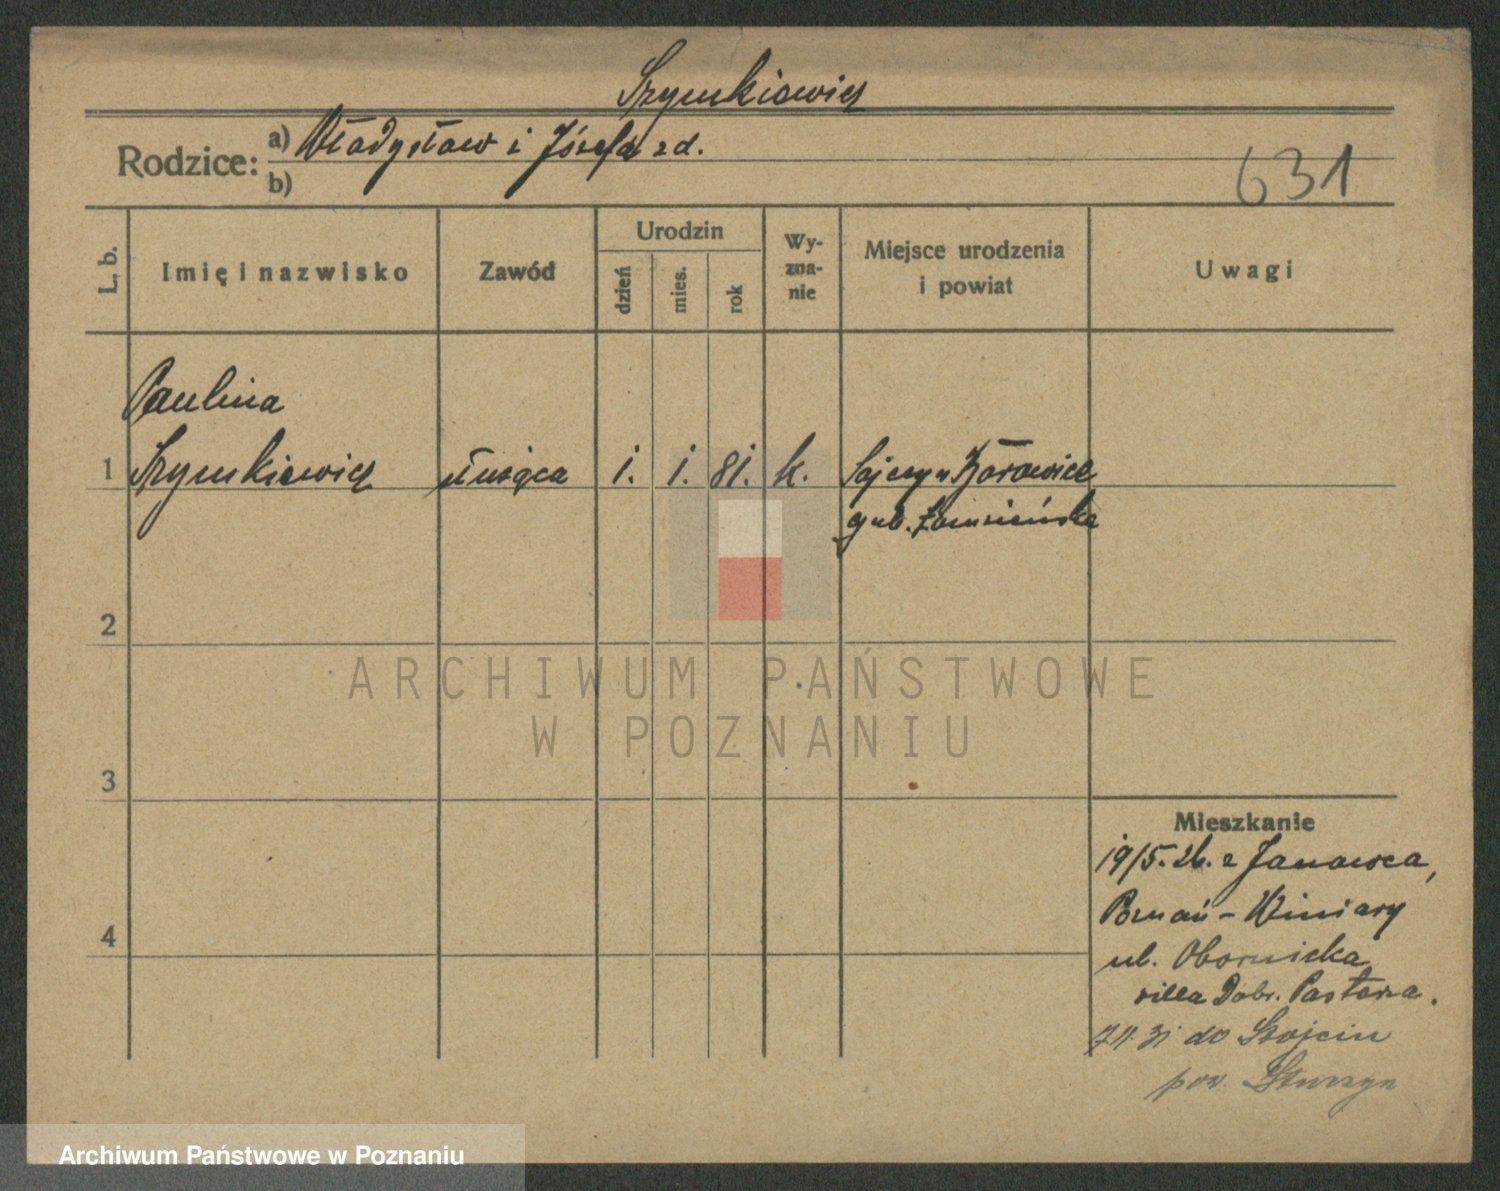 Szymkiewicz
Rodzice: a) Władysław i Józefa zd.
b)
631
L. b.
Imię i nazwisko
Zawód
Urodzin
dzień
mies.
rok
Wy-
zna-
nie
Miejsce urodzenia
i powiat
Uwagi
Paulina
1 Szymkiewicz służąca 1. 1. 81. k.
gub. Łomżeńska
2
3
4
ARCHIWUM PAŃSTWOWE
W POZNANIU
Mieszkanie
19/5.26. z Janowca,
Poznań - Winiary
ul. Obornicka
villa Dobr. Pasterza.
do
pow.
Archiwum Państwowe w Poznaniu